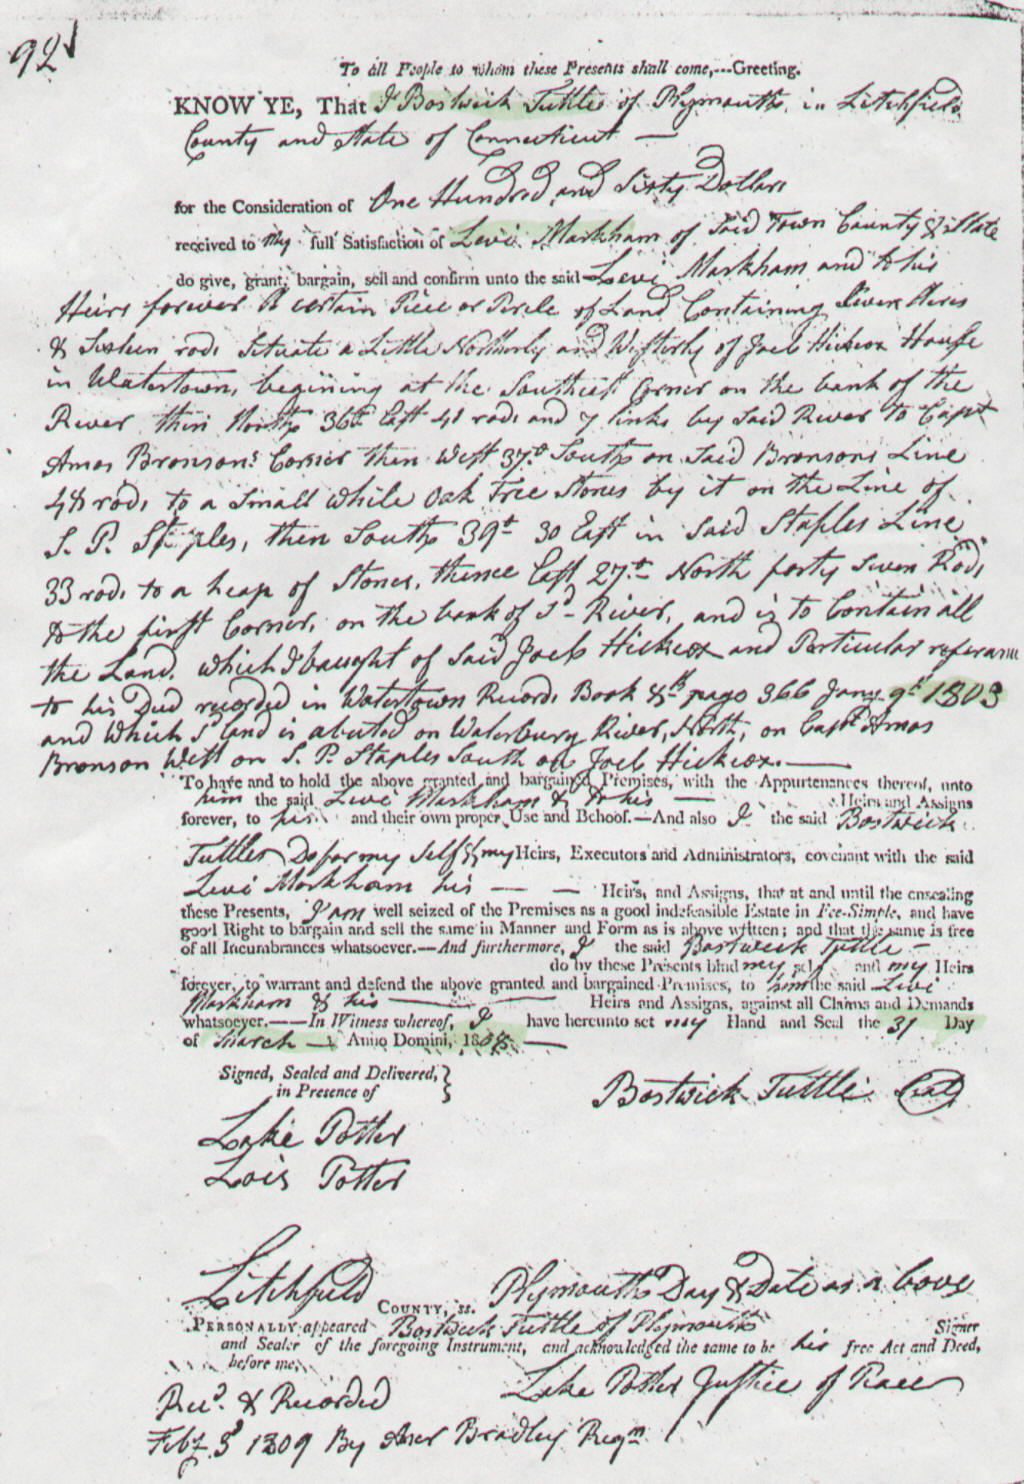 92
To all People to whom these Presents shall come,---Greeting.
KNOW YE, That I Bostwick Tuttle of Plymouth in Litchfield
County and State of Connecticut —
for the Consideration of One Hundred and Sixty Dollars
received to my full Satisfaction of Levi Markham of Said Town County & State
do give, grant, bargain, sell and confirm unto the said Levi Markham and to his
Heirs forever A certain Piece or Percle of Land Containing Seven Acres
& Sixteen rods Situate a Little Northerly and Westerly of Joel Hickox House
in Watertown, begining at the Southeast Corner on the bank of the
River then North 36d East 41 rods and 7 links by Said River to Capt
Amos Bronsons Corner then West 37d South on Said Bronsons Line
48 rods to a Small while Oak Tree Stones by it on the Line of
S. P. Staples, then South 39d 30 East in Said Staples Line
33 rods to a heap of Stones, thence East 27d North forty Seven Rods
to the first Corner, on the bank of Sd River, and is to Contain all
the Land which I baught of Said Joel Hickox and Particular referance
to his Deed recorded in Watertown Records Book 8th page 366 Jany 9th 1803
and which Sd land is abuted on Waterbury River, North, on Capt Amos
Bronson West on S. P. Staples South on Joel Hickox. —
To have and to hold the above granted and bargained Premises, with the Appurtenances thereof, unto
him the said Levi Markham & to his — Heirs and Assigns
forever, to his and their own proper Use and Behoof.—And also I the said Bostwick
Tuttle Do for my Self & my Heirs, Executors and Administrators, covenant with the said
Levi Markham his — — Heirs, and Assigns, that at and until the ensealing
these Presents, I am well seized of the Premises as a good indefeasible Estate in Fee-Simple, and have
good Right to bargain and sell the same in Manner and Form as is above written; and that the same is free
of all Incumbrances whatsoever.—And furthermore, I the said Bostwick Tuttle —
do by these Presents bind my self and my Heirs
forever, to warrant and defend the above granted and bargained Premises, to him the said Levi
Markham & his — — Heirs and Assigns, against all Claims and Demands
whatsoever.—In Witness whereof, I have hereunto set my Hand and Seal the 31 Day
of March — Anno Domini, 1808 —
Signed, Sealed and Delivered,
in Presence of
Bostwick Tuttle Seal
Lake Potter
Lois Potter
Litchfield COUNTY, ss. Plymouth Day & Date as above
PERSONALLY appeared Bostwick Tuttle of Plymouth Signer
and Sealer of the foregoing Instrument, and acknowledged the same to be his free Act and Deed,
before me,
Lake Potter Justice of Peace
Recd & Recorded
Feby 3d 1809 By Aner Bradley Regr